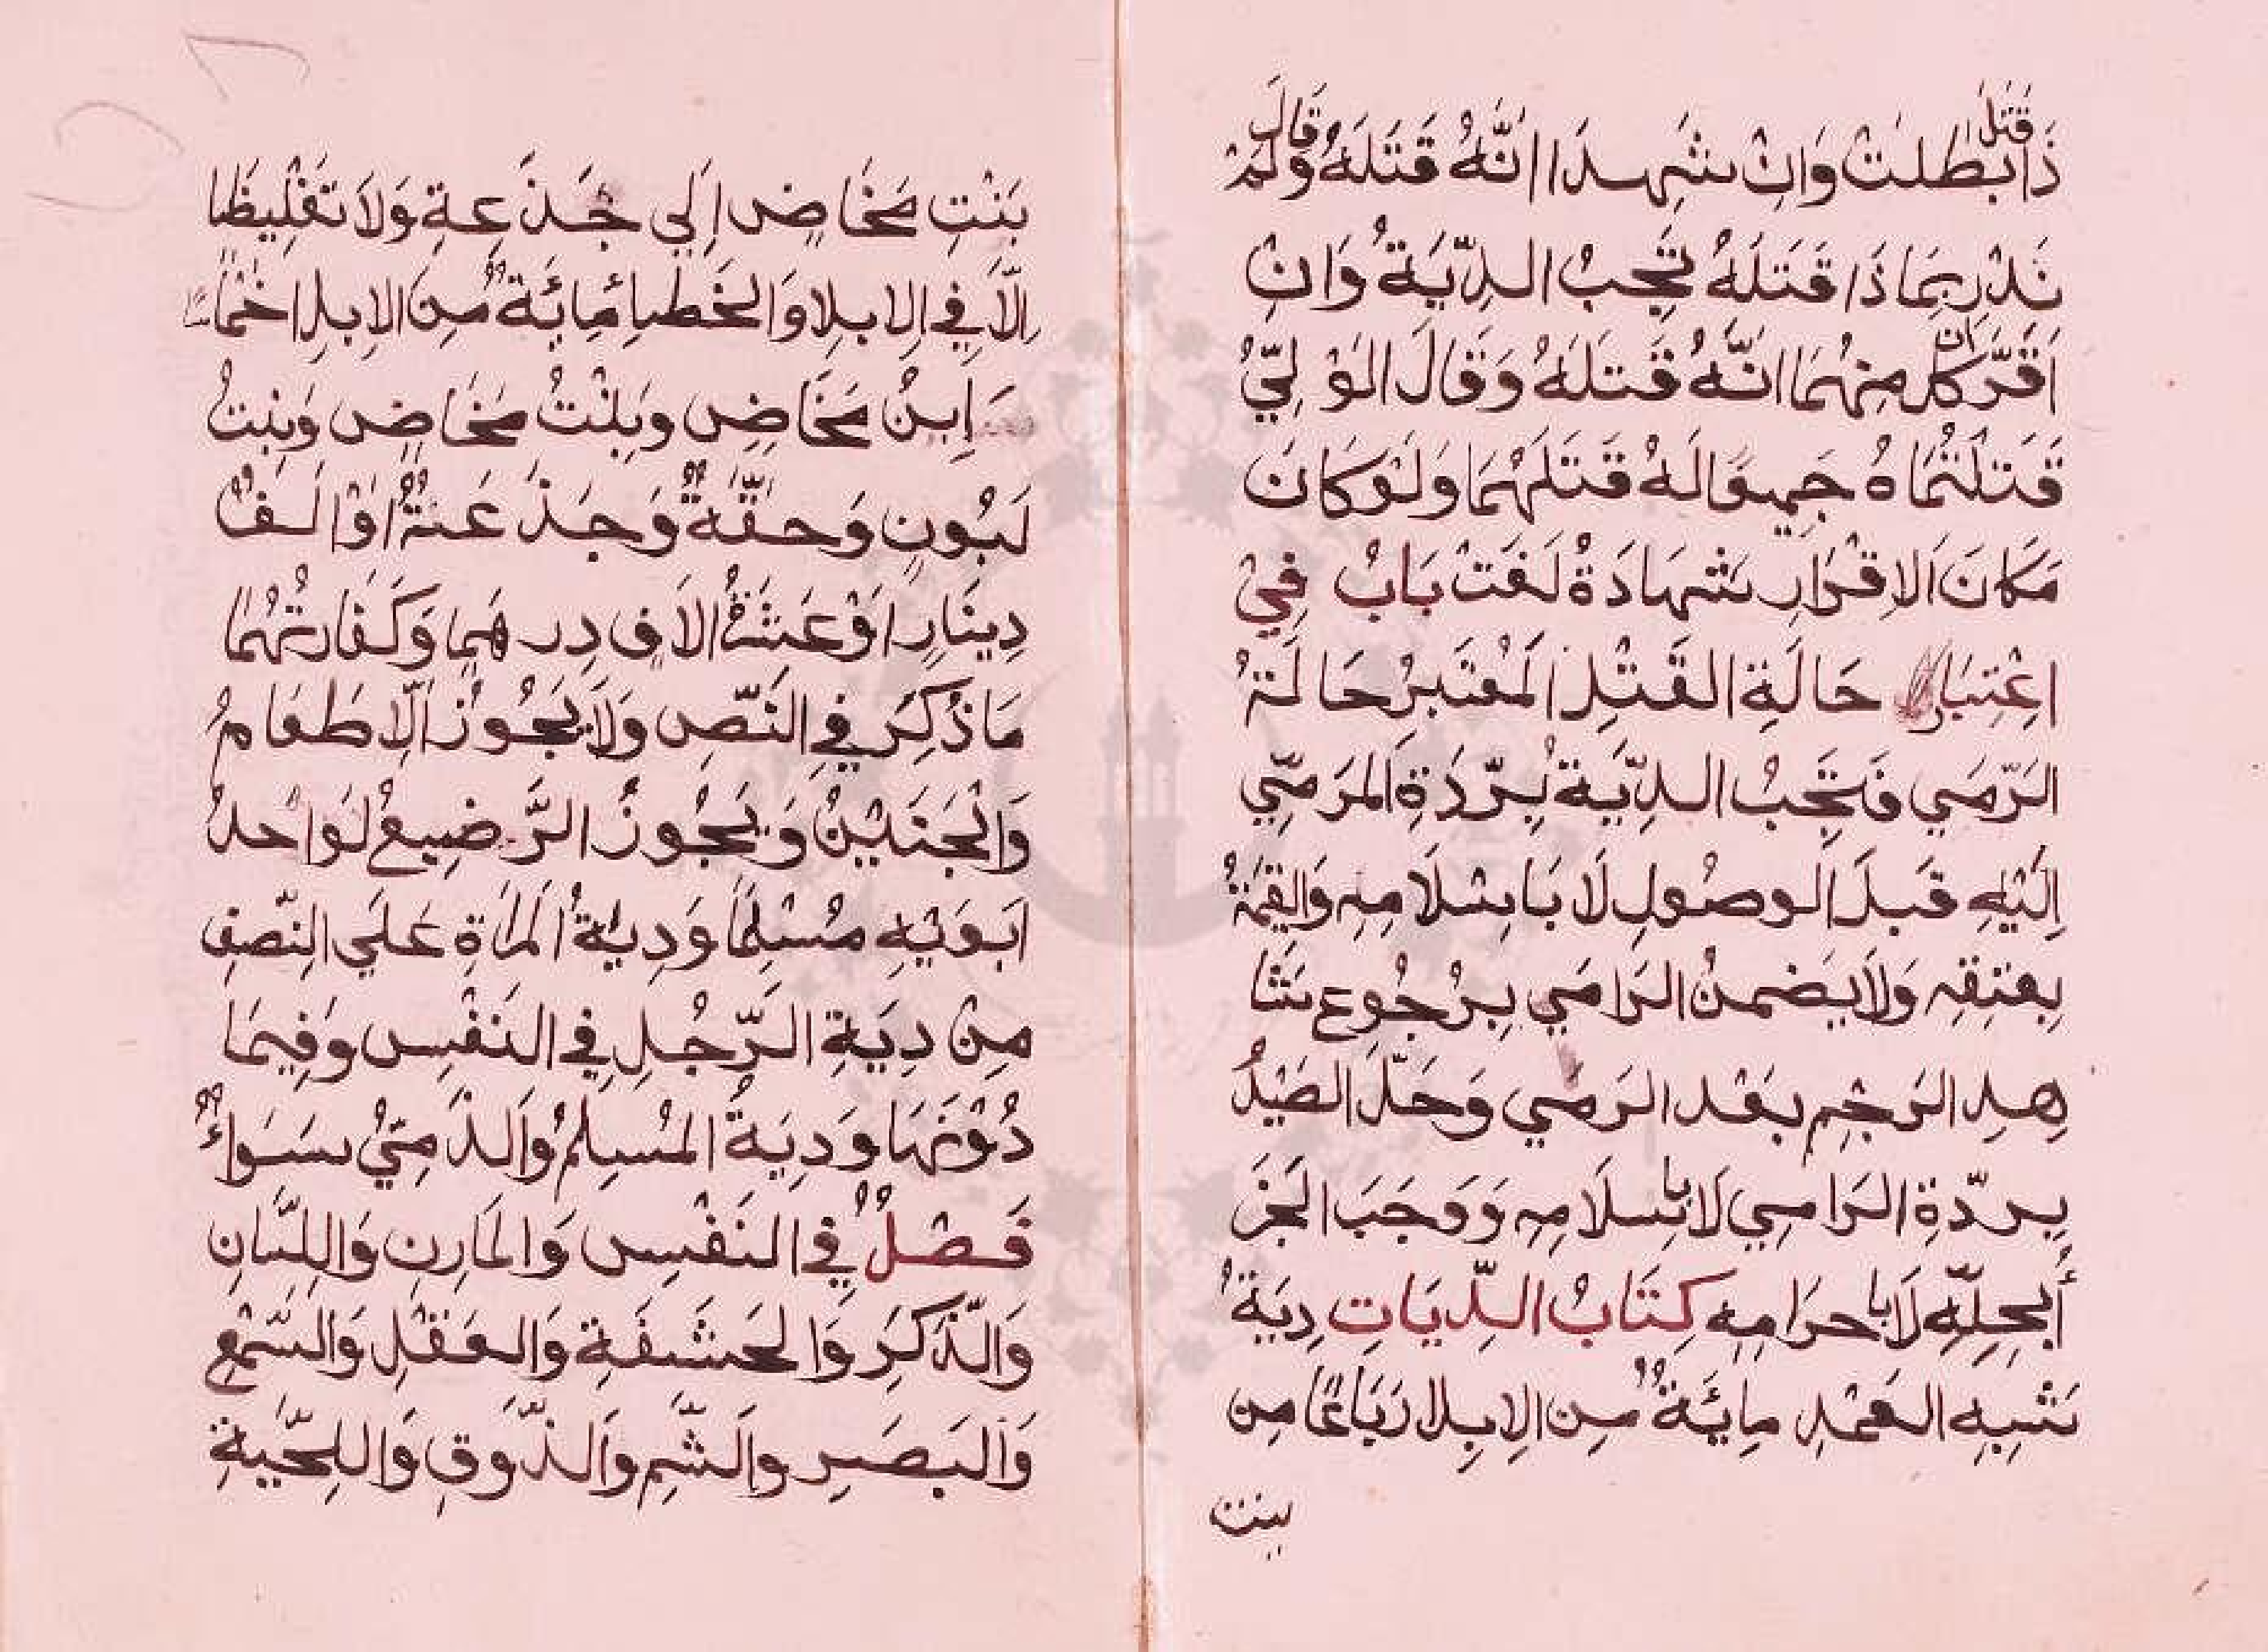 قتل قال
ذا بطلت وان شهدا انه قتله ولم
ندر بماذا قتله تجب الدية وان
اقر كل ان منهما انه قتله وقال الولي
قتلتماه جميعا له قتلهما ولو كان
مكان الاقرار شهادة لغت باب في
اعتبار حالة القتل المعتبر حالة
الرمي فتجب الدية بردة المرمي
اليه قبل الوصول لا باسلامه والقيمة
بعتقه ولا يضمن الرامي برجوع شا
هد الرجم بعد الرمي وحل الصيد
بردة الرامي لا باسلامه ووجب الجز
أ بحله لا باحرامه كتاب الديات دية
شبه العمد مائة من الابل ارباعا من
بنت
بنت مخاض الي جذعة ولا تغليظا
الا في الابل والخطا مائة من الابل اخماسا
ابن مخاض وبنت مخاض وبنت
لبون وحقة وجذعة او الف
دينار او عشرة الاف درهم وكفارتهما
ما ذكر في النص ولا يجوز الا طعام
والجنين ويجوز الرضيع لو احد
ابويه مسلما ودية المراة علي النصف
من دية الرجل في النفس وفيما
دونها ودية المسلم والذمي سواء
فصل في النفس والمارن واللسان
والذكر والحشفة والعقل والسمع
والبصر والشم والذوق واللحية